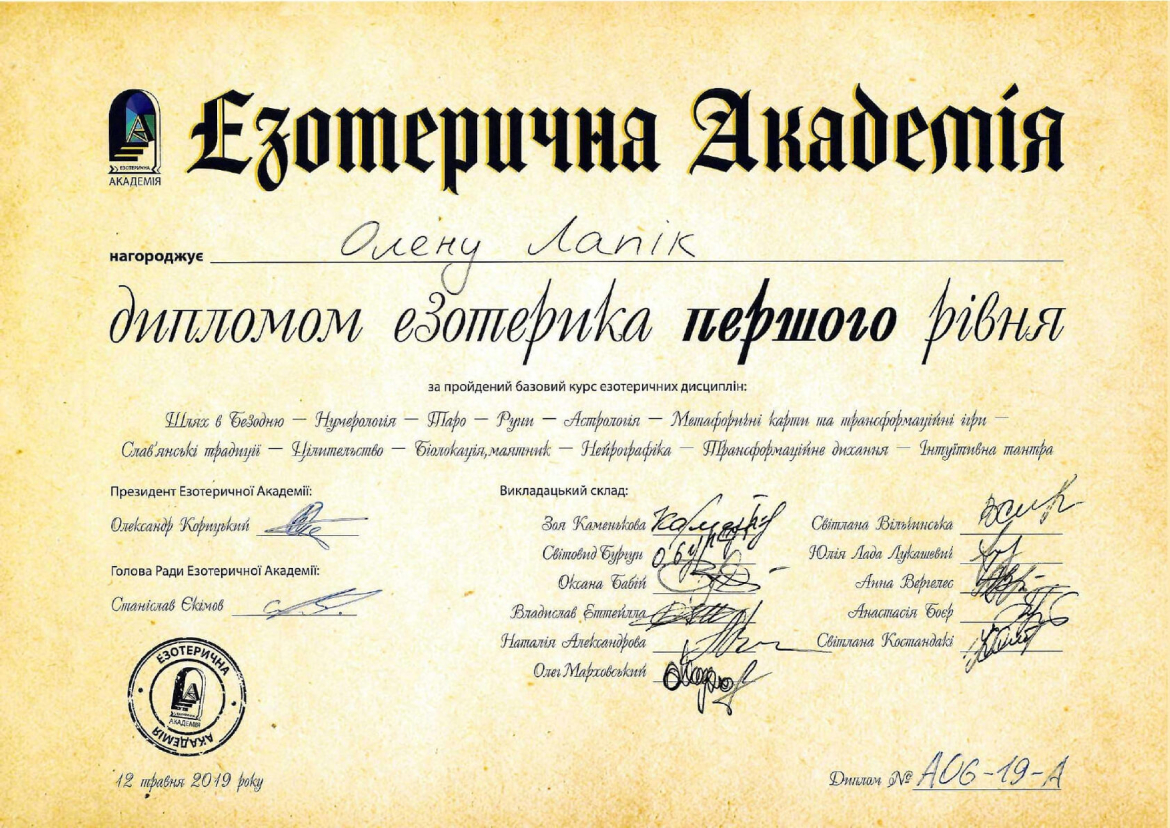 Езотерична Академія
ЕЗОТЕРИЧНА
АКАДЕМІЯ
нагороджує Олену Лапік
дипломом езотерика першого рівня
за пройдений базовий курс езотеричних дисциплін:
Шлях в Безодню — Нумерологія — Таро — Руни — Астрологія — Метафоричні карти та трансформаційні ігри —
Слав'янські традиції — Цілительство — Біолокація,маятник — Нейрографіка — Трансформаційне дихання — Інтуїтивна тантра
Президент Езотеричної Академії:
Олександр Корицький
Голова Ради Езотеричної Академії:
Станіслав Єкімов
Викладацький склад:
Зоя Каменькова
Світовид Бургун
Оксана Бабій
Владислав Еттейлла
Наталія Александрова
Олег Марховський
Світлана Вільчинська
Юлія Лада Лукашевич
Анна Вергелес
Анастасія Боєр
Світлана Костандакі
ЕЗОТЕРИЧНА
АКАДЕМІЯ
АКАДЕМІЯ
12 травня 2019 року
Диплом № А06-19-А